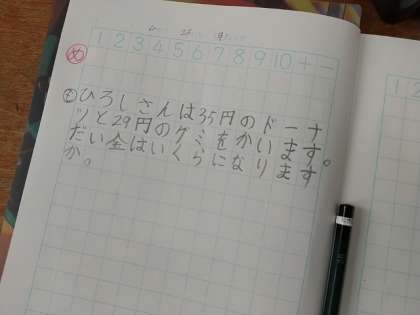 1 2 3 4 5 6 7 8 9 10 + −
め
ひろしさんは35円のドーナ
ツと29円のグミをかいます。
だい金はいくらになります
か。
1 2